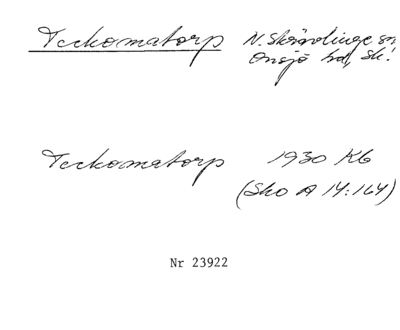 Teckomatorp N. Skrävlinge sn
Onsjö hd, Sk!
Teckomatorp 1930 Kb
(Sko A 14:164)
Nr 23922